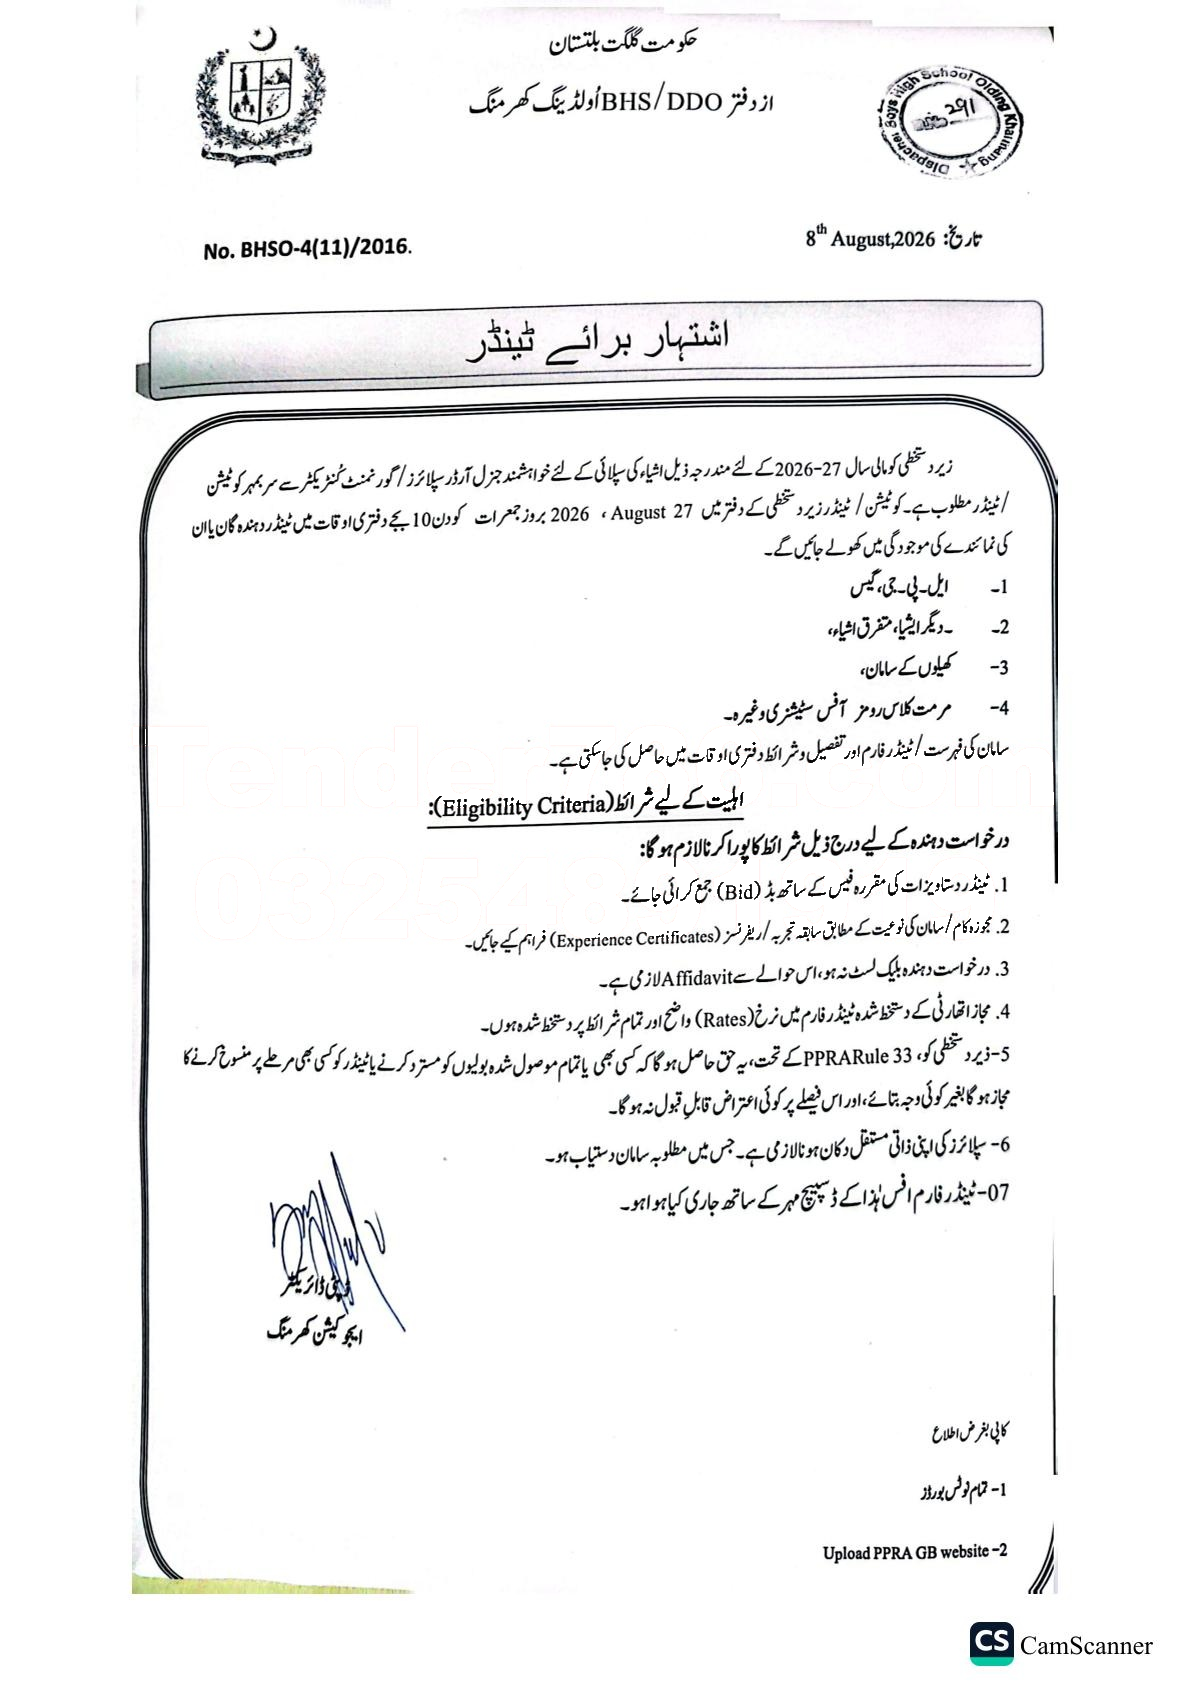 حکومت گلگت بلتستان
از دفتر BHS/DDO اُولڈینگ کھرمنگ
Dispacher Boys High School Olding Kharmang
291
No. BHSO-4(11)/2016.
تاریخ: 8th August,2026
اشتہار برائے ٹینڈر
زیر دستخطی کو مالی سال 27-2026 کے لئے مندرجہ ذیل اشیاء کی سپلائی کے لئے خواہشمند جنرل آرڈر سپلائرز / گورنمنٹ کُنٹریکٹر سے سر بمہر کوٹیشن
/ ٹینڈر مطلوب ہے۔ کوٹیشن / ٹینڈر زیر دستخطی کے دفتر میں 27 August ، 2026 بروز جمعرات کو دن 10 بجے دفتری اوقات میں ٹینڈر دہندہ گان یا ان
کی نمائندے کی موجودگی میں کھولے جائیں گے۔
1۔ ایل۔پی۔جی، گیس
2۔ ۔دیگر ایشیا، متفرق اشیاء،
3- کھیلوں کے سامان،
4- مرمت کلاس رومز آفس سٹیشنری وغیرہ۔
سامان کی فہرست / ٹینڈر فارم اور تفصیل و شرائط دفتری اوقات میں حاصل کی جا سکتی ہے۔
اہلیت کے لیے شرائط (Eligibility Criteria):
درخواست دہندہ کے لیے درج ذیل شرائط کا پورا کرنا لازم ہو گا:
1. ٹینڈر دستاویزات کی مقررہ فیس کے ساتھ بڈ (Bid) جمع کرائی جائے۔
2. مجوزہ کام / سامان کی نوعیت کے مطابق سابقہ تجربہ / ریفرنسز (Experience Certificates) فراہم کیے جائیں۔
3. درخواست دہندہ بلیک لسٹ نہ ہو، اس حوالے سے Affidavit لازمی ہے۔
4. مجاز اتھارٹی کے دستخط شدہ ٹینڈر فارم میں نرخ (Rates) واضح اور تمام شرائط پر دستخط شدہ ہوں۔
5- زیر دستخطی کو، PPRARule 33 کے تحت، یہ حق حاصل ہو گا کہ کسی بھی یا تمام موصول شدہ بولیوں کو مسترد کرنے یا ٹینڈر کو کسی بھی مرحلے پر منسوخ کرنے کا
مجاز ہو گا بغیر کوئی وجہ بتائے، اور اس فیصلے پر کوئی اعتراض قابلِ قبول نہ ہو گا۔
6- سپلائرز کی اپنی ذاتی مستقل دکان ہونا لازمی ہے۔ جس میں مطلوبہ سامان دستیاب ہو۔
07- ٹینڈر فارم افس ہٰذا کے ڈسپیچ مہر کے ساتھ جاری کیا ہوا ہو۔
ڈپٹی ڈائریکٹر
ایجوکیشن کھرمنگ
کاپی بغرض اطلاع
1- تمام نوٹس بورڈز
2- Upload PPRA GB website
CS CamScanner